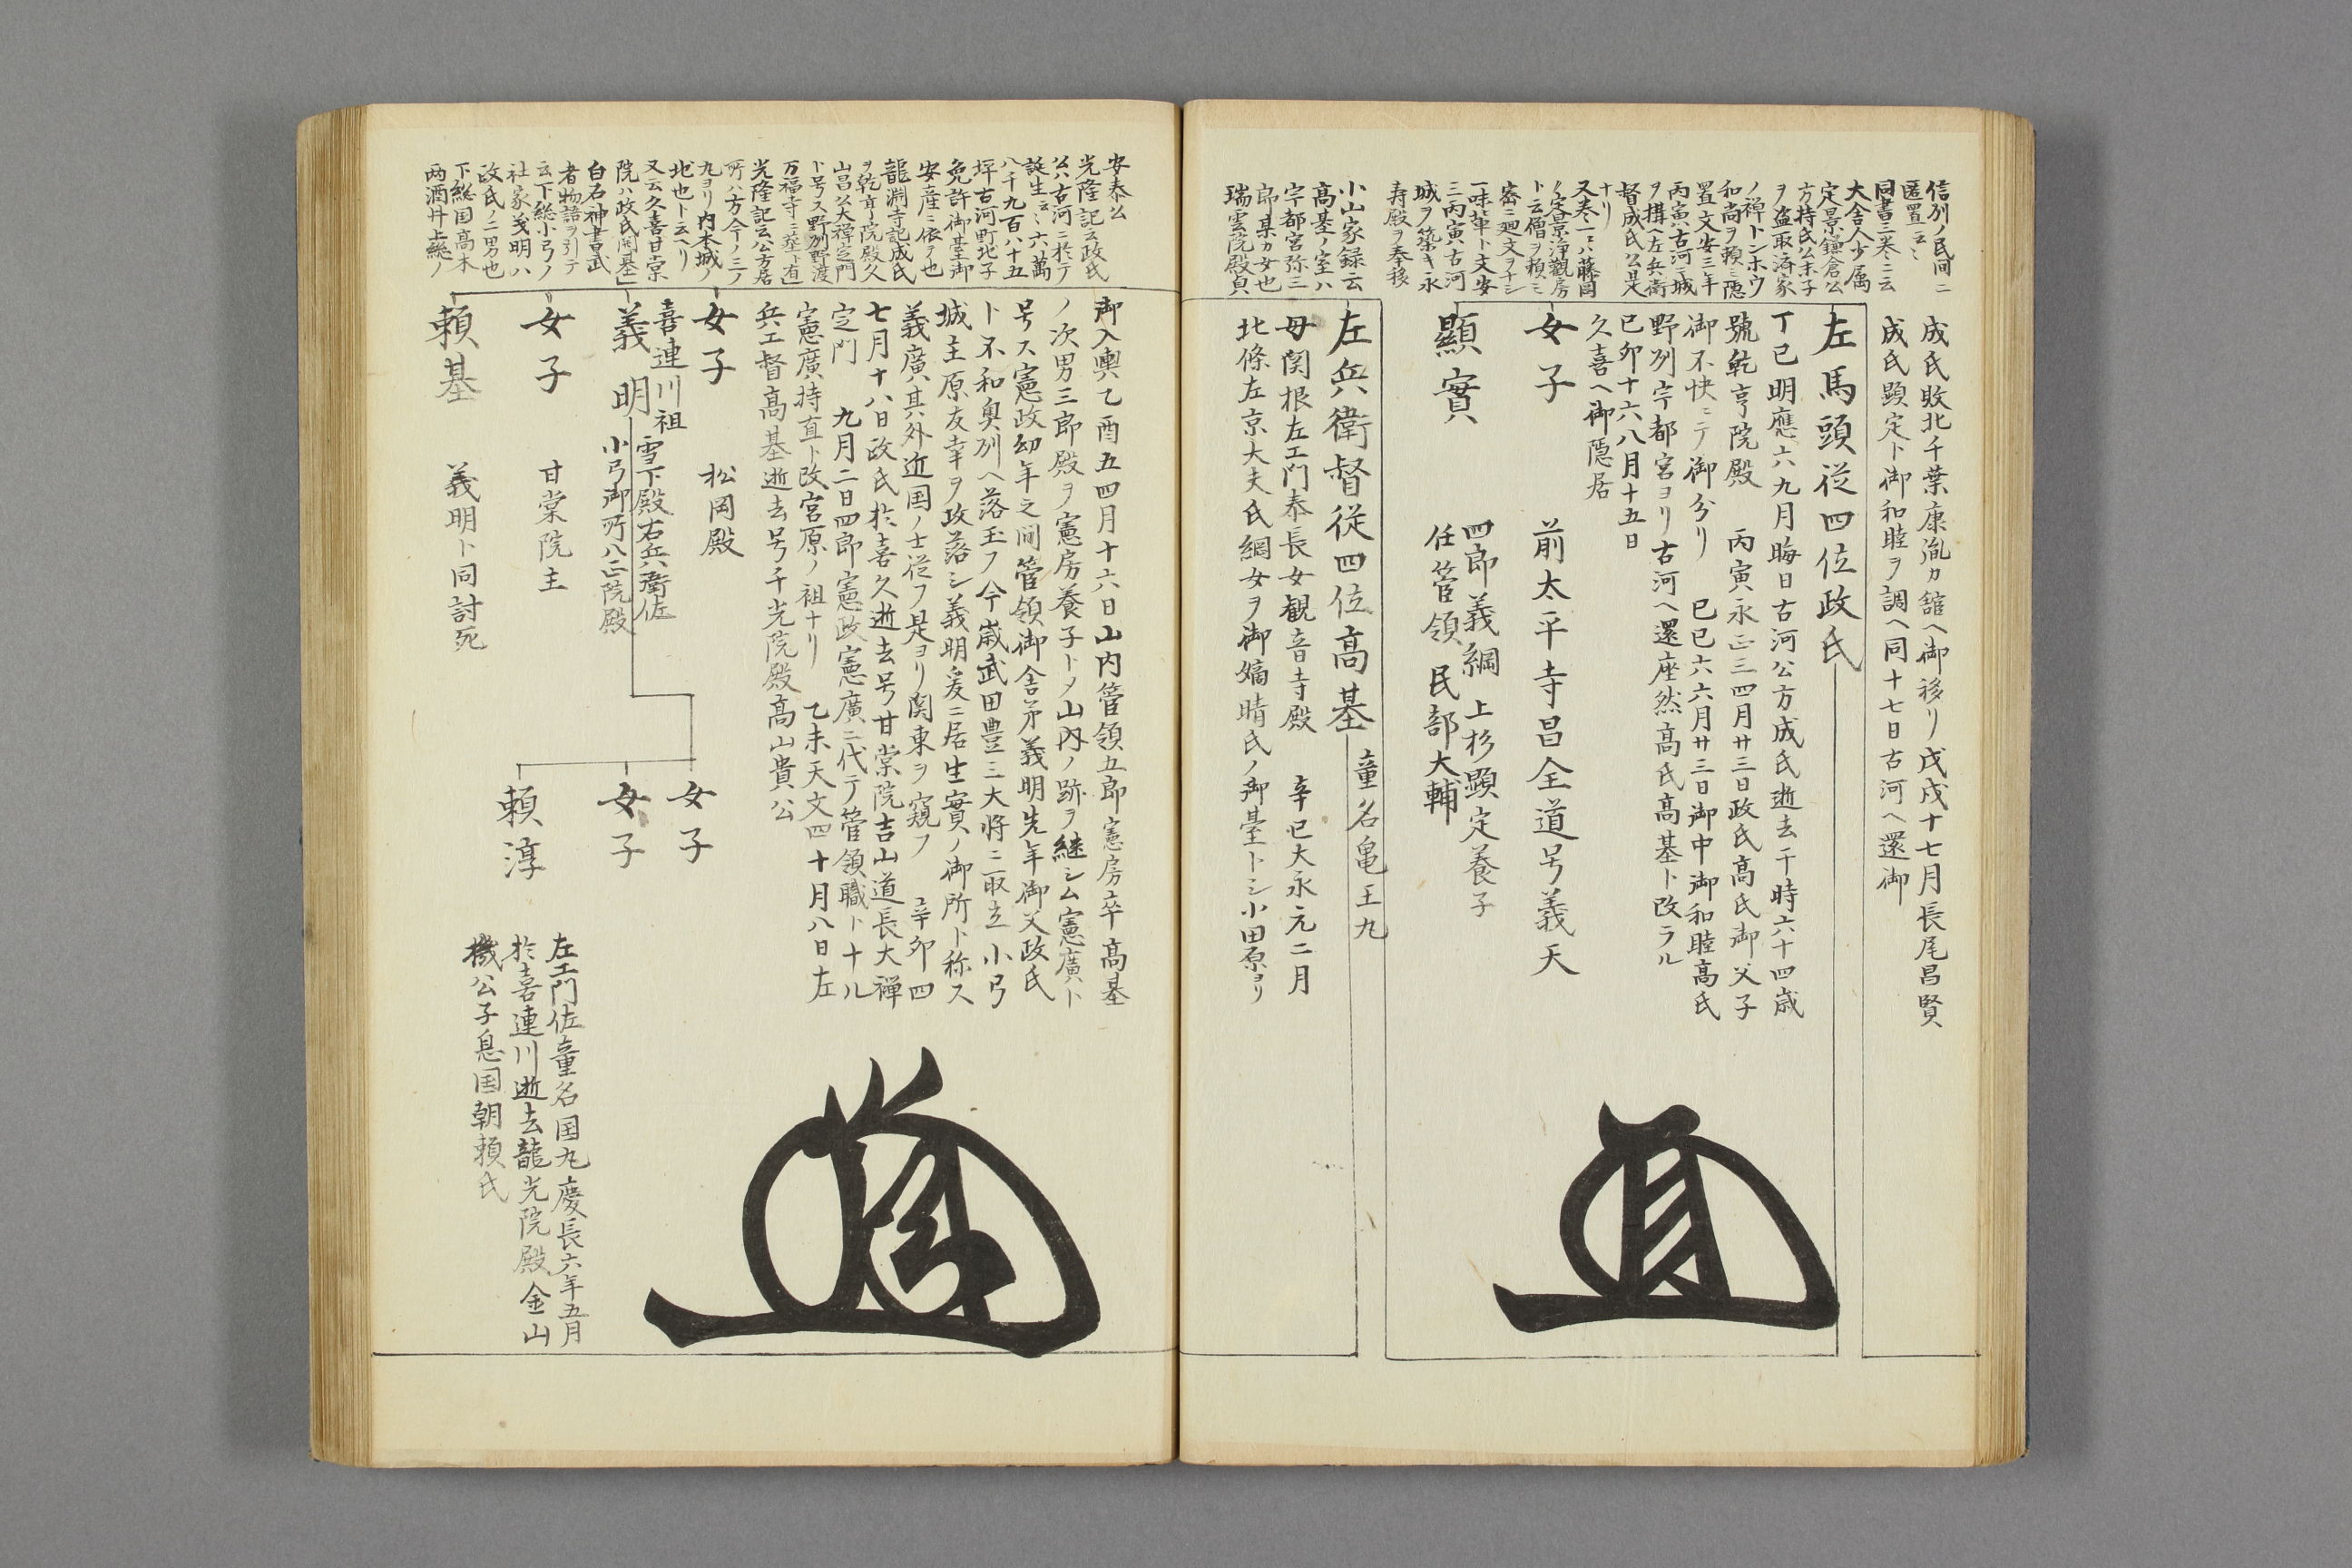 信州ノ民間ニ
匿置云々
同書三巻ニ云
大舎人少属
定景鎌倉公
方持氏公末子
ヲ盗取済家
ノ禅トンホウ
和尚ヲ頼ミ隠
置文安三年
丙寅古河ニ城
ヲ構ヘ左兵衛
督成氏公是
ナリ
又巻一ニハ藤岡
ノ定景浄観房
ト云僧ヲ頼ミ
密ニ廻文ヲナシ
一味輩ト文安
三丙寅古河
城ヲ築キ永
寿殿ヲ奉移
小山家録云
高基ノ室ハ
宇都宮弥三
郎某カ女也
瑞雲院殿貞
成氏敗北千葉康胤カ舘ヘ御移リ戊戌十七月長尾昌賢
成氏顕定ト御和睦ヲ調ヘ同十七日古河ヘ還御
左馬頭従四位政氏
丁巳明應六九月晦日古河公方成氏逝去于時六十四歳
號乾亨院殿 丙寅永正三四月廿三日政氏高氏御父子
御不快ニテ御分リ 己巳六六月廿三日御中御和睦高氏
野州宇都宮ヨリ古河ヘ還座然高氏高基ト改ラル
己卯十六八月十五日
久喜ヘ御隠居
女子 前太平寺昌全道号義天
顯實 四郎義綱 上杉顕定養子
任管領 民部大輔
左兵衛督従四位高基 童名亀王丸
母関根左エ門泰長女観音寺殿 辛巳大永元二月
北條左京大夫氏綱女ヲ御嫡晴氏ノ御臺トシ小田原ヨリ
安泰公
光隆記云政氏
公ハ古河ニ於テ
誕生云々六萬
八千九百八十五
坪古河町北子
免許御基御
安産ニ依テ也
龍渕寺記成氏
ヲ乾亨院殿久
山昌公大禅定門
ト号ス野州野渡
万福寺ニ墓ト有
光隆記云公方居
所ハ方今ノ三ノ
九ヨリ内本城ノ
地也ト云ヘリ
又云久喜甘棠
院ハ政氏開基
白石神書武
者物語ヲ引テ
云下総小弓ノ
社家義明ハ
政氏ノ二男也
下総国高木
両酒井上総ノ
御入輿乙酉五四月十六日山内管領五郎憲房卒高基
ノ次男三郎殿ヲ憲房養子トメ山内ノ跡ヲ継シム憲廣ト
号ス憲政幼年之間管領御舎弟義明先年御父政氏
ト不和奥州ヘ落玉フ今歳武田豊三大将ニ取立小弓
城主原友幸ヲ攻落シ義明爰ニ居生實ノ御所ト称ス
義廣ハ其外近国ノ士従フ是ヨリ関東ヲ窺フ 辛卯四
七月十八日政氏於喜久逝去号甘棠院吉山道長大禅
定門 九月二日四郎憲政憲廣ニ代テ管領職トナル
憲廣持直ト改宮原ノ祖ナリ 乙未天文四十月八日左
兵工督高基逝去号千光院殿高山貴公
女子 松岡殿
喜連川祖
義明 雪下殿右兵衛佐
小弓御所八正院殿
女子 甘棠院主
頼基 義明ト同討死
女子
女子
頼淳 左エ門佐童名国丸慶長六年五月
於喜連川逝去龍光院殿金山
機公子息国朝頼氏